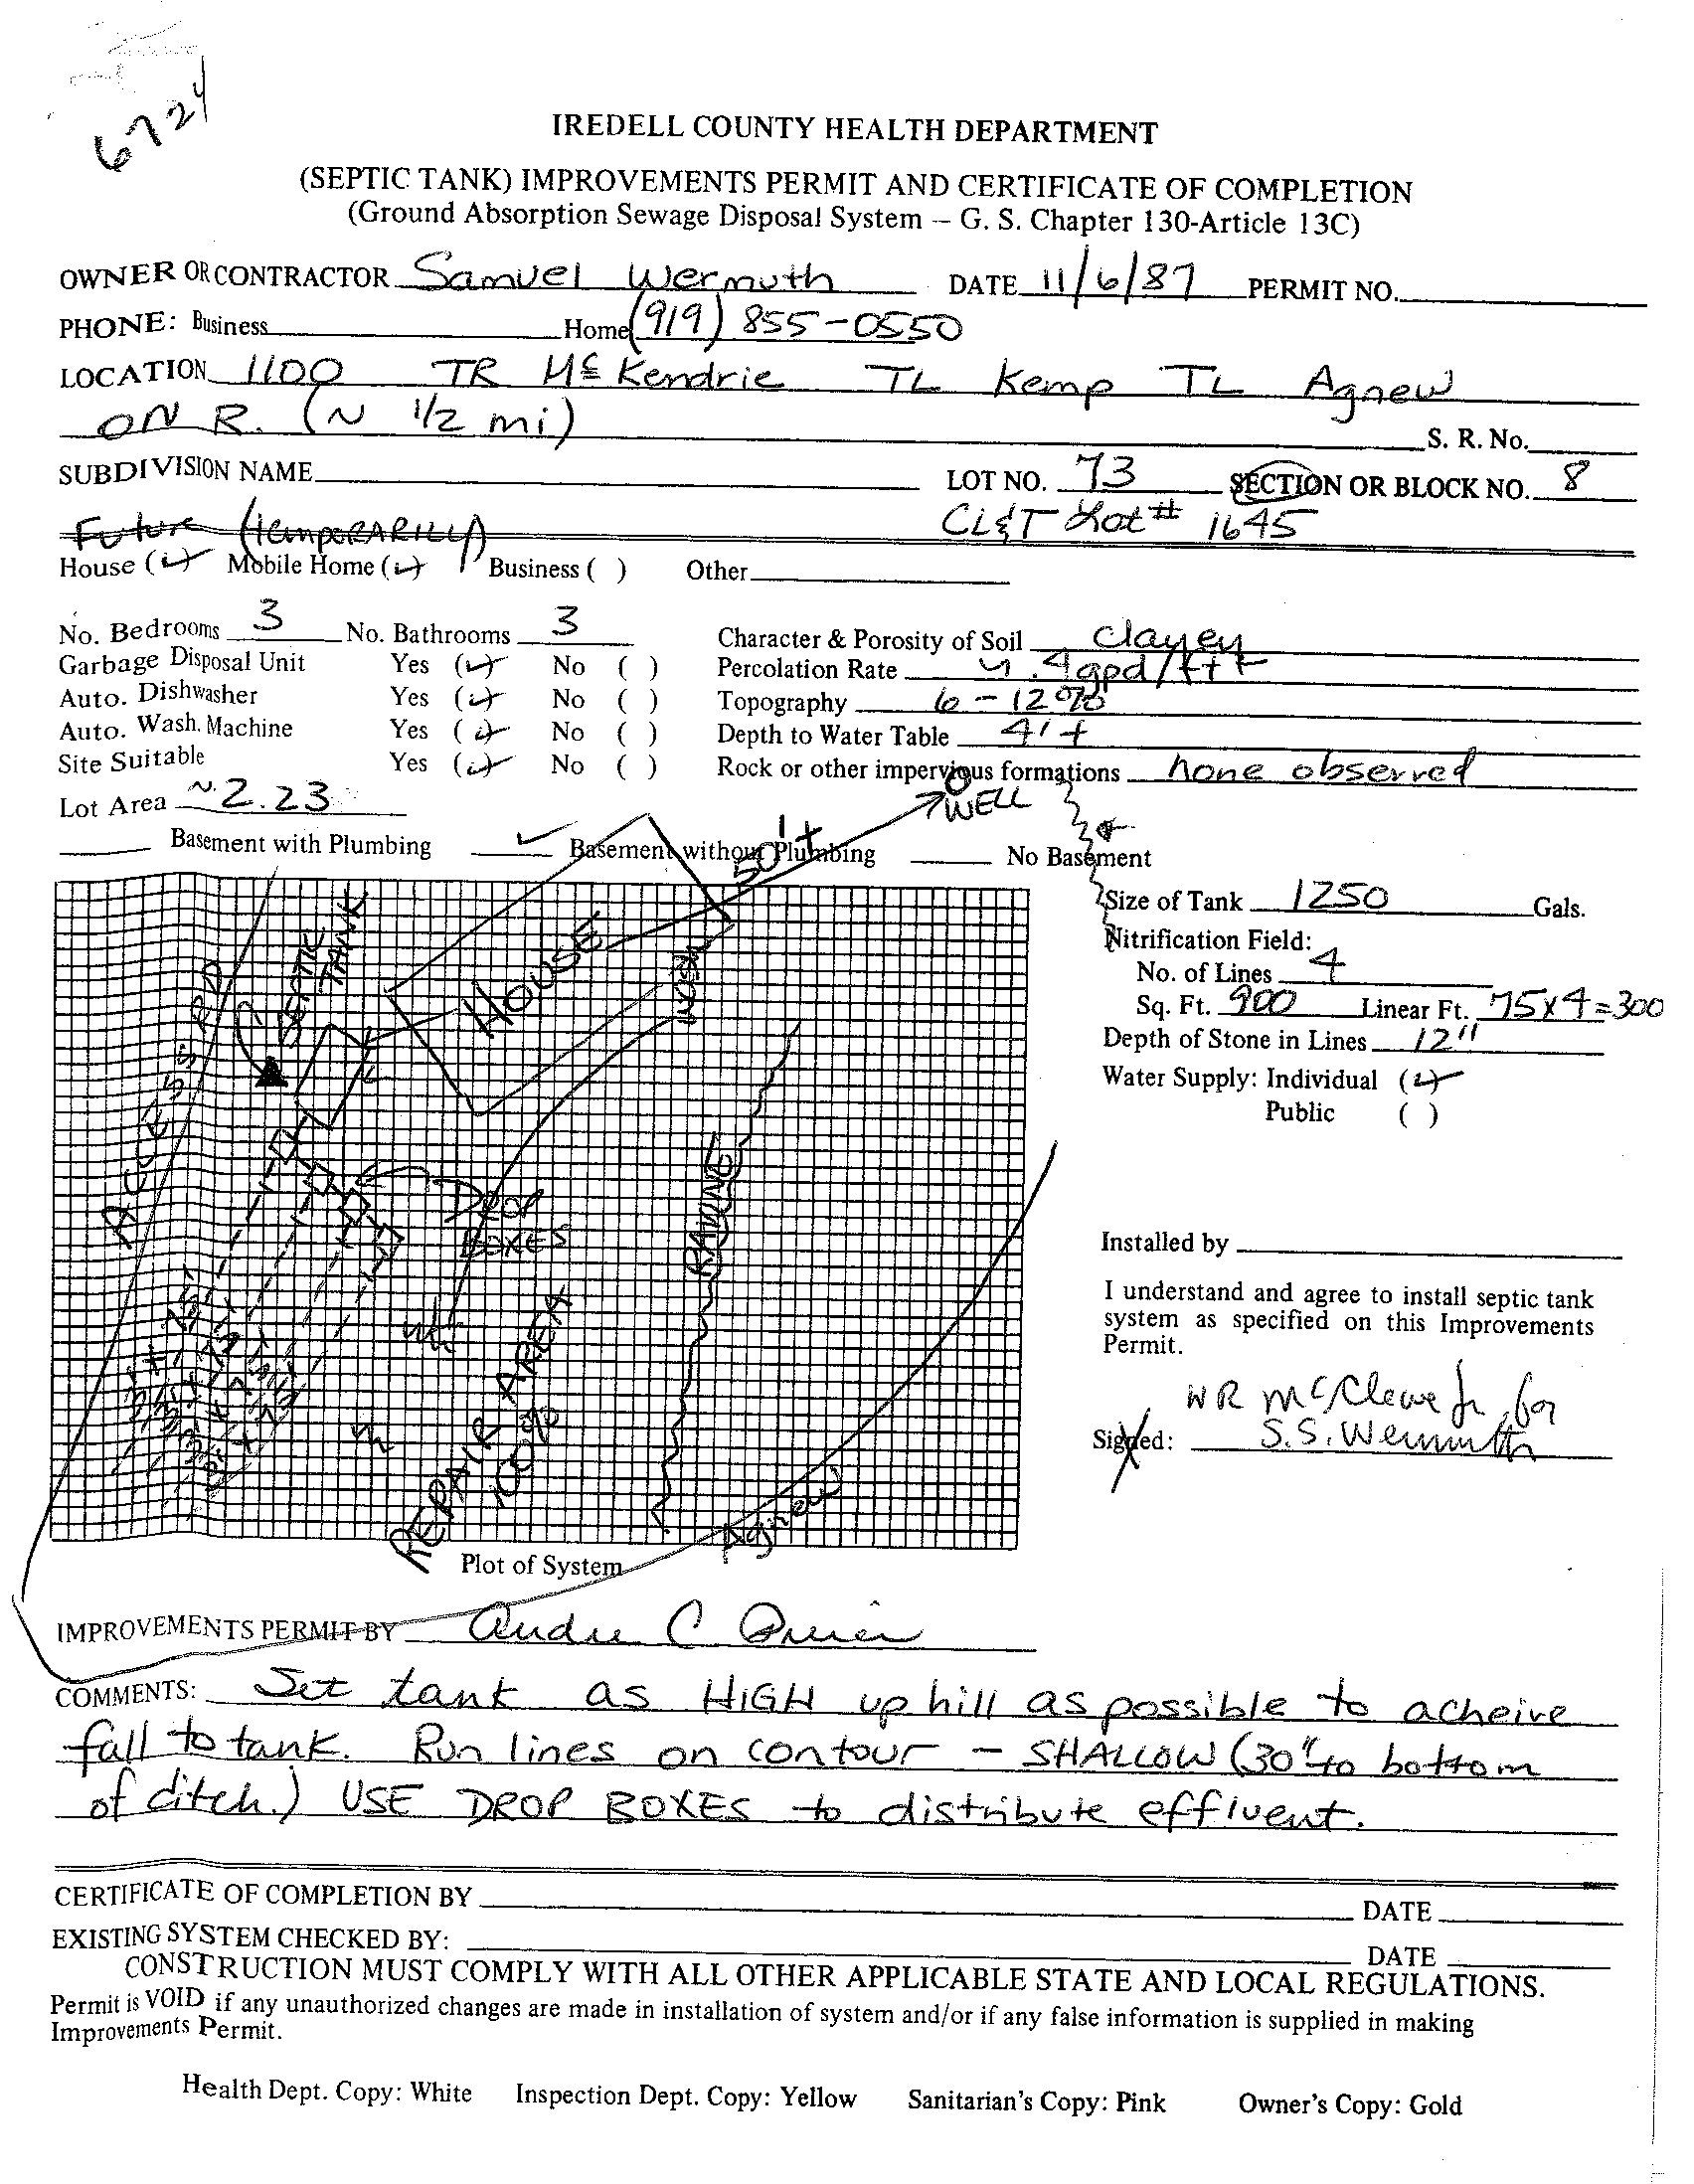 6724
IREDELL COUNTY HEALTH DEPARTMENT
(SEPTIC TANK) IMPROVEMENTS PERMIT AND CERTIFICATE OF COMPLETION
(Ground Absorption Sewage Disposal System – G. S. Chapter 130-Article 13C)
OWNER OR CONTRACTOR Samuel Wermuth DATE 11/6/87 PERMIT NO.
PHONE: Business Home (919) 855-0550
LOCATION 1100 TR McKendrie TL Kemp TL Agnew
ON R. (~ 1/2 mi) S. R. No.
SUBDIVISION NAME LOT NO. 73 SECTION OR BLOCK NO. 8
Future (temporarily) CL&T Lot # 1645
House (✓) Mobile Home (✓) Business ( ) Other
No. Bedrooms 3 No. Bathrooms 3 Character & Porosity of Soil clayey
Garbage Disposal Unit Yes (✓) No ( ) Percolation Rate .4gpd/ft
Auto. Dishwasher Yes (✓) No ( ) Topography 6 - 12%
Auto. Wash. Machine Yes (✓) No ( ) Depth to Water Table 4'+
Site Suitable Yes (✓) No ( ) Rock or other impervious formations none observed
Lot Area ~2.23 WELL
Basement with Plumbing ✓ Basement without Plumbing No Basement
50'+
Size of Tank 1250 Gals.
Nitrification Field:
No. of Lines 4
Sq. Ft. 900 Linear Ft. 75x4=300
Depth of Stone in Lines 12"
Water Supply: Individual (✓)
Public ( )
ACCESS RD
SEPTIC TANK
HOUSE
DROP BOXES
RAVINE
REPAIR AREA
100%
Agnew
Installed by
I understand and agree to install septic tank
system as specified on this Improvements
Permit.
WR McClewe Jr for
Signed: S.S. Wermuth
Plot of System
IMPROVEMENTS PERMIT BY Andre C
COMMENTS: Set tank as HIGH up hill as possible to acheive
fall to tank. Run lines on contour - SHALLOW (30" to bottom
of ditch.) USE DROP BOXES to distribute effluent.
CERTIFICATE OF COMPLETION BY DATE
EXISTING SYSTEM CHECKED BY: DATE
CONSTRUCTION MUST COMPLY WITH ALL OTHER APPLICABLE STATE AND LOCAL REGULATIONS.
Permit is VOID if any unauthorized changes are made in installation of system and/or if any false information is supplied in making
Improvements Permit.
Health Dept. Copy: White Inspection Dept. Copy: Yellow Sanitarian's Copy: Pink Owner's Copy: Gold